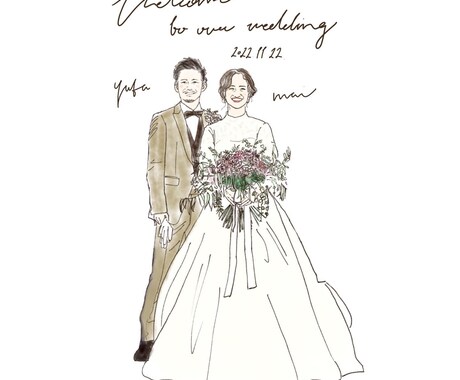 Welcome
to our wedding
2022 11 22
yuta mau